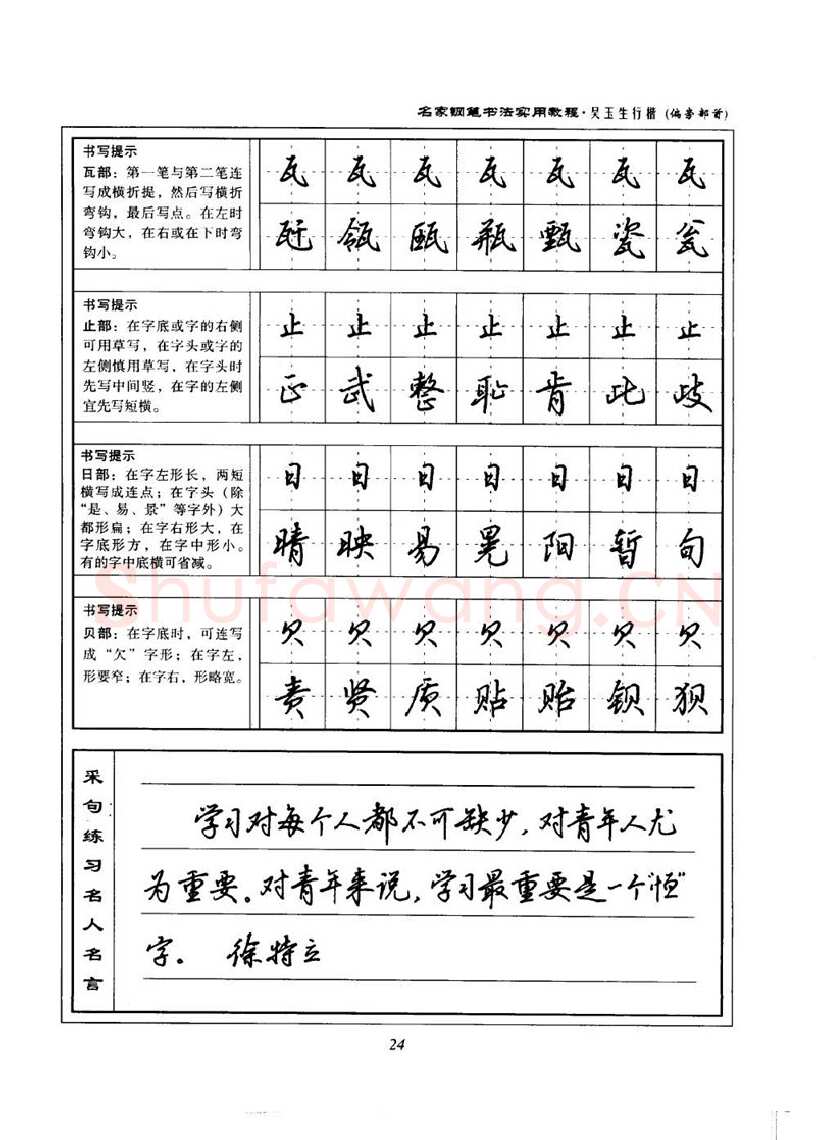 名家钢笔书法实用教程·吴玉生行楷（偏旁部首）
书写提示
瓦部：第一笔与第二笔连
写成横折提，然后写横折
弯钩，最后写点。在左时
弯钩大，在右或在下时弯
钩小。
瓦 瓦 瓦 瓦 瓦 瓦 瓦
瓩 瓴 瓯 瓶 甄 瓷 瓮
书写提示
止部：在字底或字的右侧
可用草写，在字头或字的
左侧慎用草写，在字头时
先写中间竖，在字的左侧
宜先写短横。
止 止 止 止 止 止 止
正 武 整 耻 肯 此 歧
书写提示
日部：在字左形长，两短
横写成连点；在字头（除
“是、易、景”等字外）大
都形扁；在字右形大，在
字底形方，在字中形小。
有的字中底横可省减。
日 日 日 日 日 日 日
晴 映 易 晃 阳 暂 旬
书写提示
贝部：在字底时，可连写
成“欠”字形；在字左，
形要窄；在字右，形略宽。
贝 贝 贝 贝 贝 贝 贝
责 贤 质 贴 贻 钡 狈
采句练习名人名言
学习对每个人都不可缺少，对青年人尤
为重要。对青年来说，学习最重要是一个“恒”
字。 徐特立
24
Shufawang.CN